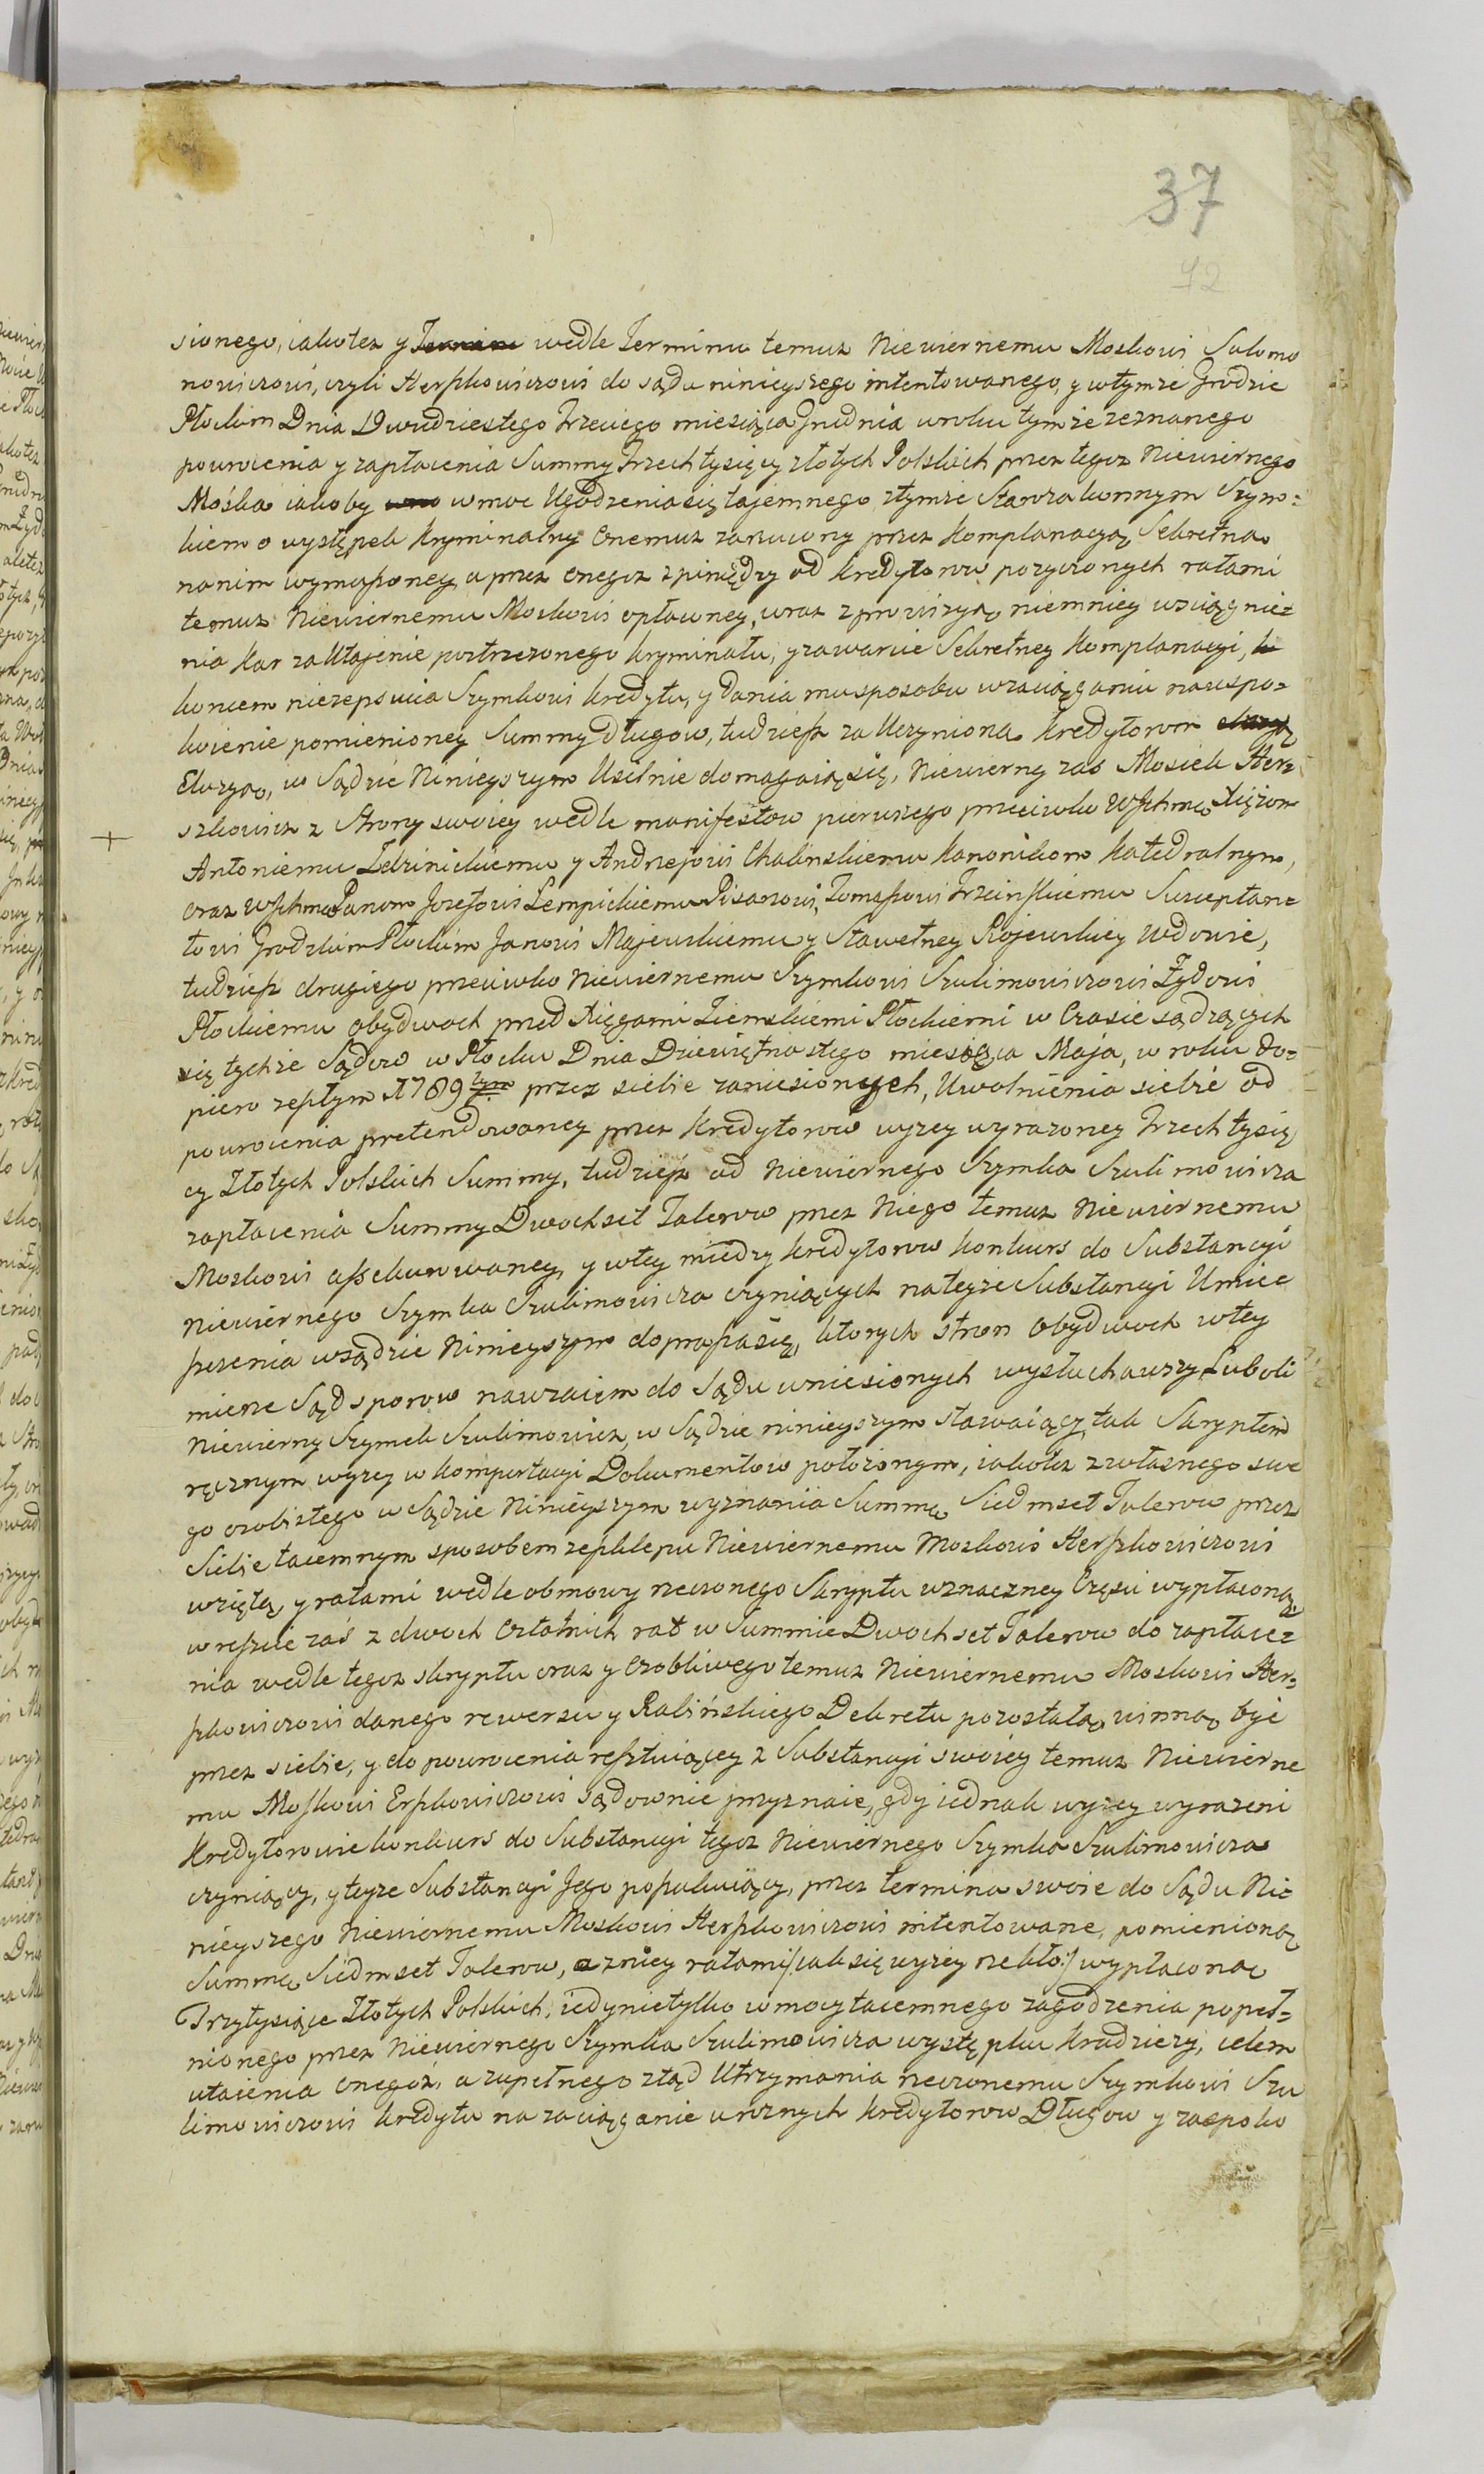 37
92
sionego, iakotez y wedle Terminu temuz Niewiernemu Moszkowi Salomo
nowiczowi, czyli Herszkowiczowi do sądu ninieyszego intentowanego, y wtymze Grodzie
Płockim Dnia Dwudziestego Trzeciego miesiąca Grudnia wroku tymze zeznanego
powrocenia y zapłacenia Summy Trzech tysięcy złotych Polskich przez tegoz Niewiernego
Mośka iakoby wmoc Ugodzenia się tajemnego ztymze Starozakonnym Szym-
kiem o występek Kryminalny Onemuz zarzucony przez Komplanacyą Sekretną
nanim wymaszoney, a przez onegoz zpiniędzy od Kredytorow pozyczonych ratami
temuz Niewiernemu Moszkowi opłaconey, wraz zprowizyą, niemniey wsciągnie-
nia Kar za Utajenie postrzezonego Kryminału, y zawarcie Sekretney Komplanacyi,
koncem niezepsucia Szymkowi Kredytu, y Dania mu sposobu wzaciąganiu nauspo-
koienie pomienioney Summy Długow, tudziesz za Uczynioną Kredytorom
Eluzyą, w Sądzie Ninieyszym Usilnie domagaią się, Niewierny zas Mosiek Her-
szkowicz z Strony swoiey wedle manifestow pierwszego przeciwko WJchmc Xięzom
Antoniemu Zdzinickiemu y Andrzejowi Chalinskiemu Kanonikom Katedralnym,
oraz WJchmc Panom Jozefowi Lempickiemu Pisarzowi, Tomaszowi Trzcinskiemu Susceptan-
towi Grodzkim Płockim Janowi Majewskiemu y Sławetney Rojewskiey Wdowie,
tudziesz drugiego przeciwko Niewiernemu Szymkowi Szulimowiczowi Zydowi
Płockiemu obydwoch przed Xięgami Ziemskiemi Płockiemi w Czasie sądzących
się tychze Sądow w Płocku Dnia Dziewiętnastego miesiąca Maja, w roku do-
piero zeszłym 1789tym przez siebie zaniesionych, Uwolnienia siebie od
powrocenia pretendowaney przez Kredytorow wyzey wyrazoney Trzech tysię
cy Złotych Polskich Summy, tudziesz od Niewiernego Szymka Szulimowicza
zapłacenia Summy Dwochset Talerow przez Niego temuz Niewiernemu
Moszkowi assekurowaney, y wtey miedzy Kredytorow Konkurs do Substancyi
Niewiernego Szymka Szulimowicza czyniących nateyze Substancyi Umie
szczenia wsądzie Ninieyszym doprasza się, ktorych stron obydwoch wtey
mierze Sąd sporow nawzaiem do Sądu wniesionych wysłuchawszy, Luboli
Niewierny Szymek Szulimowicz, w Sądzie ninieyszym stawaiący, tak Skryptem
ręcznym wyzey w Komportacyi Dokumentow połozonym, iakotez zwłasnego swe
go osobistego w Sądzie Ninieyszym wyznania Summę Siedmset Talerow przez
Siebie taiemnym sposobem zesklepu Niewiernemu Moszkowi Herszkowiczowi
wziętą, y ratami wedle obmowy rzeczonego Skryptu wznaczney Częsci wypłaconą
wreszcie zaś z dwoch Ostatnich rat w Summie Dwochset Talerow do zapłace-
nia wedle tegoz skryptu oraz y Osobliwego temuz Niewiernemu Moszkowi Her-
szkowiczowi danego rewersu y Rabińskiego Dekretu pozostałą, winną byc
przez siebie, y do powrocenia resztuiącey z Substancyi swoiey temuz Niewierne
mu Moszkowi Erszkowiczowi sądownie przyznaie, gdy iednak wyzey wyrazeni
Kredytorowie konkurs do Substancyi tegoz Niewiernego Szymka Szulimowicza
czyniący, y teyze Substancyi Jego poszukuiący, przez termina swoie do Sądu Ni-
nieyszego Niewiernemu Moszkowi Herszkowiczowi intentowane, pomienioną
Summę Siedmset Talerow, a zniey ratami /:iak się wyzey rzekło:/ wypłaconą
Trzytysiące Złotych Polskich, iedynie tylko wmocy taiemnego zagodzenia popeł-
nionego przez Niewiernego Szymka Szulimowicza występku Kradziezy, celem
utaienia onegoz, a zupełnego ztąd Utrzymania rzeczonemu Szymkowi Szu
limowiczowi Kredytu na zaciąganie uroznych Kredytorow Długow y zaspoko